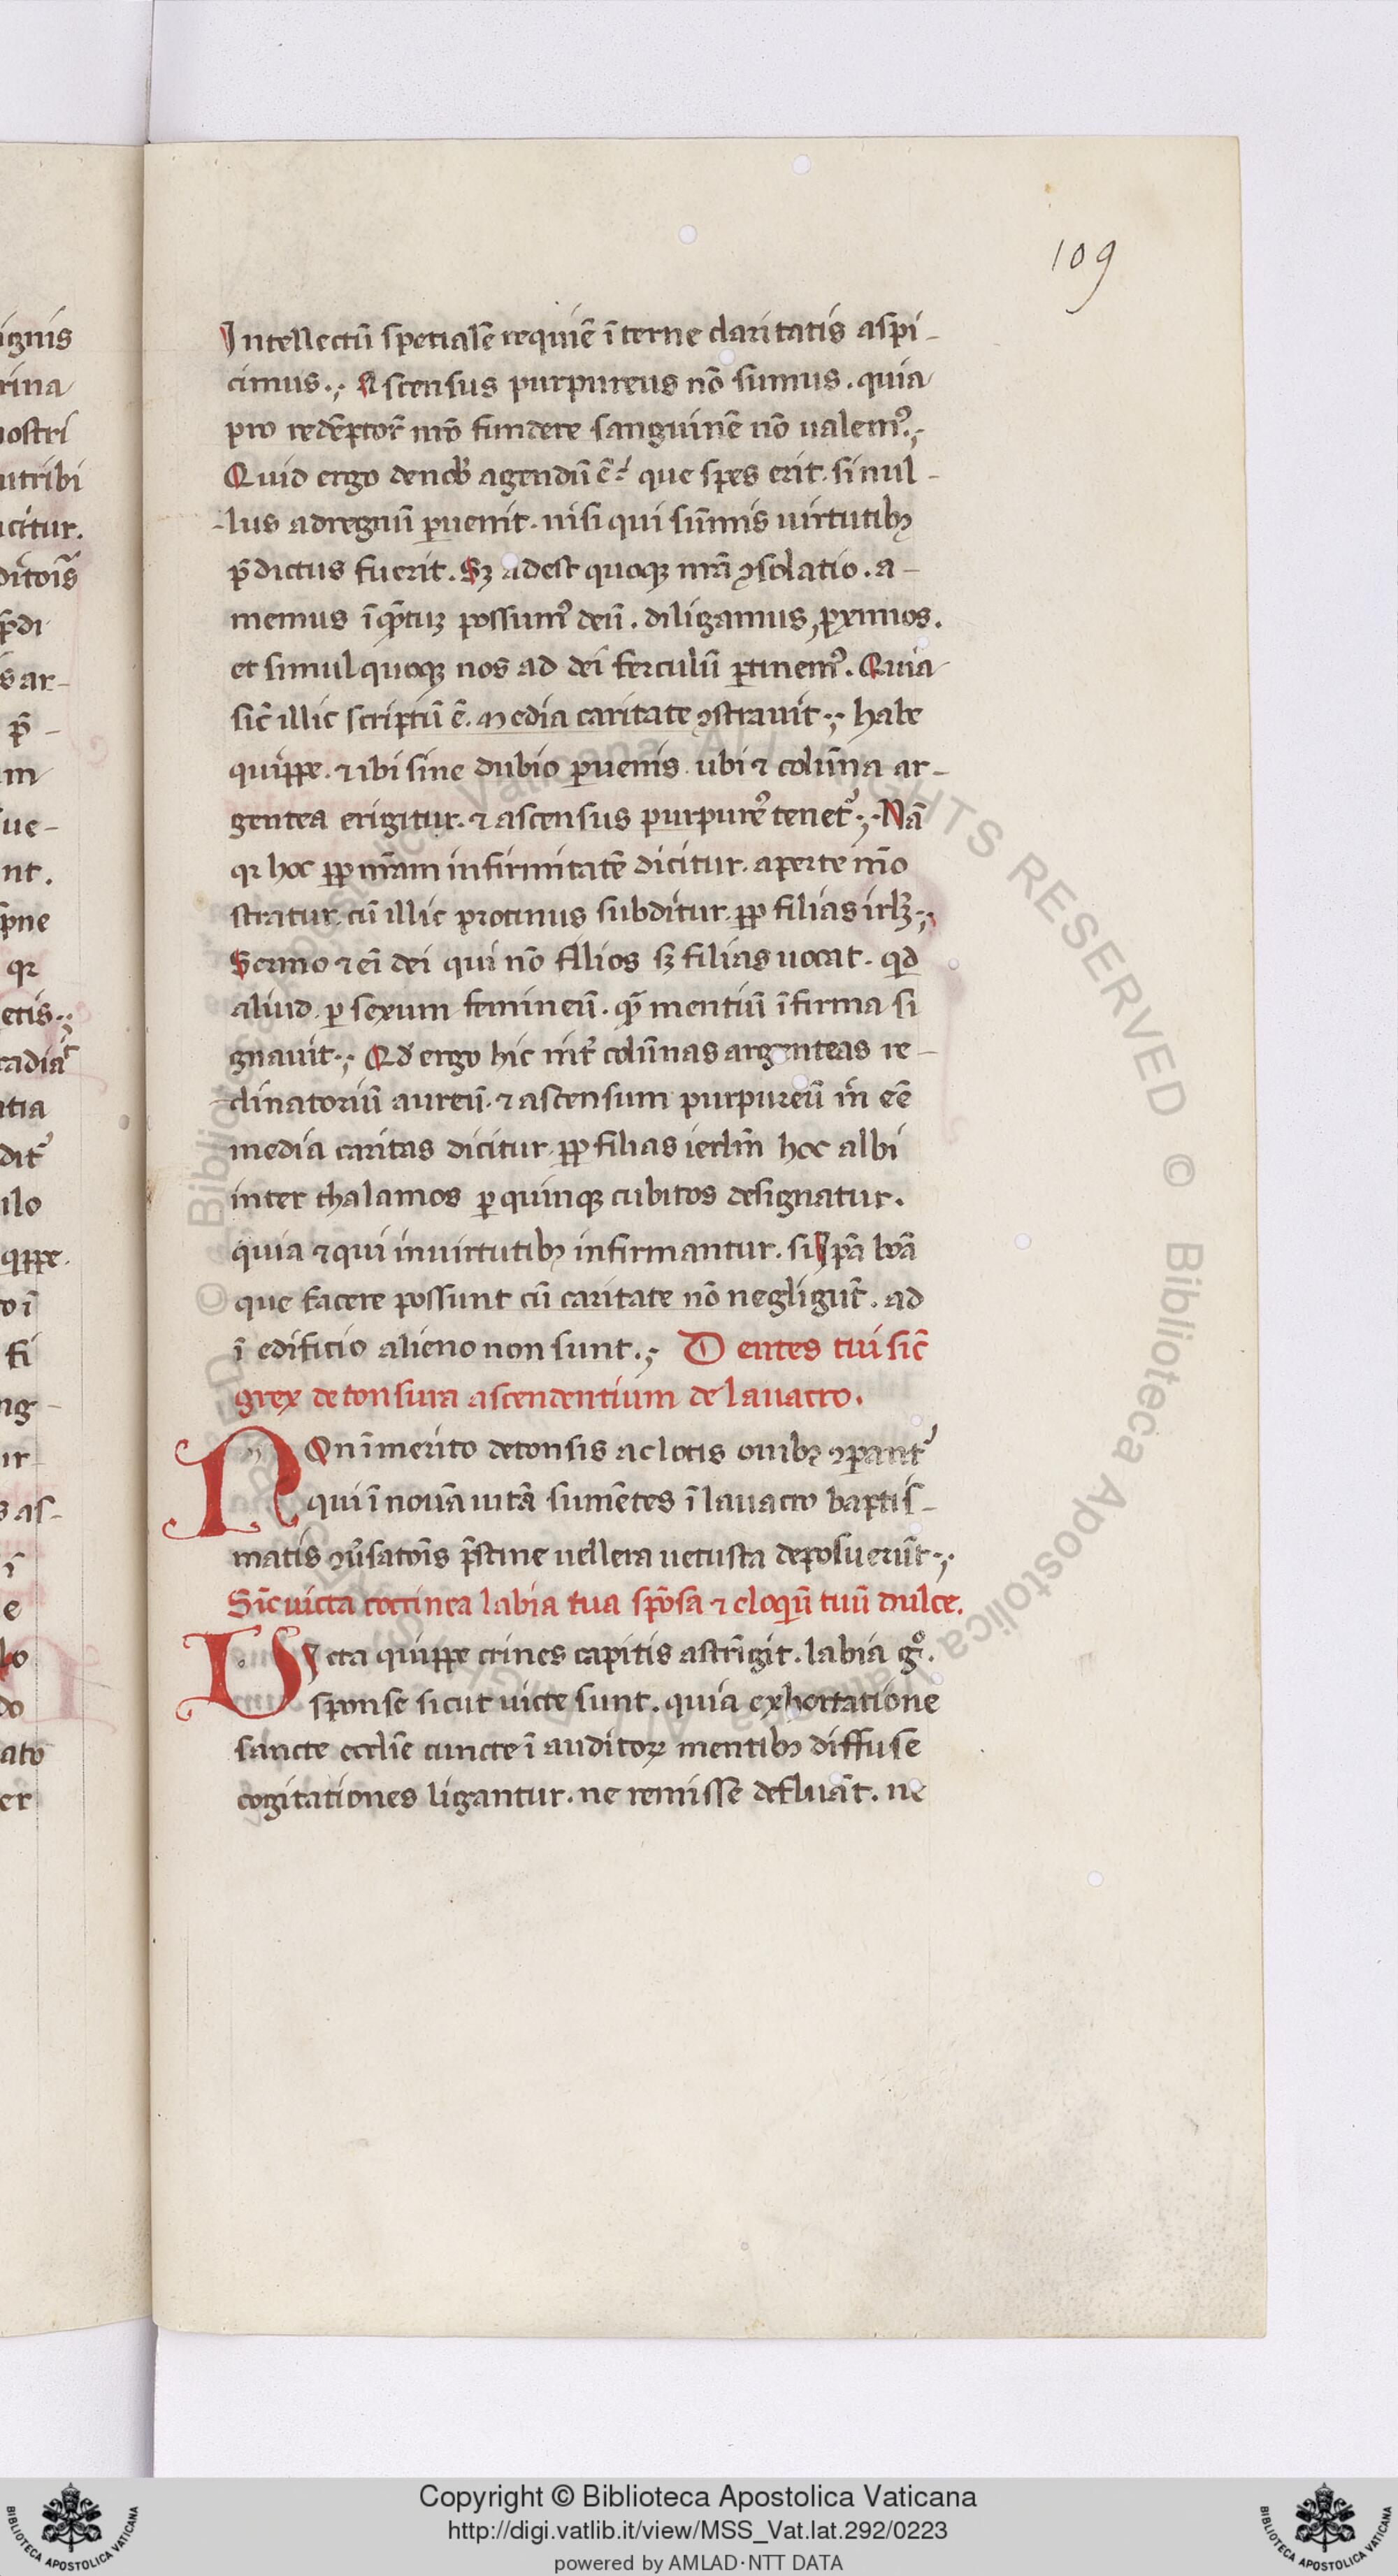 109
Intellectū spetialē requiē ī terne claritatis aspi-
cimus. Ascensus purpureus nō sumus. quia
pro redēptor̄ nrō fundere sanguinē nō ualemꝰ.
Quid ergo de nob̄ agendū ē? que spes erit. si nul-
-lus ad regnū ꝑuenit. nisi qui sūmis uirtutibꝫ
p̄dictus fuerit. Sꝫ adest quoqꝫ nrā ꝯsolatio. a-
memus ī qᷓtuꝫ possumꝰ deū. diligamus ꝓximos.
et simul quoqꝫ nos ad dei ferculū ꝑtinemꝰ. Quia
sic̄ illic scriptū ē. media caritate ꝯstrauit. habe
quippe. ⁊ ibi sine dubio ꝑuenis. ubi ⁊ colūna ar-
gentea erigitur. ⁊ ascensus purpureꝰ tenet᷑. Nā
qꝛ hoc ꝓp nr̄am infirmitatē dicitur. aperte mō
stratur. cū illic protinus subditur. ꝓp filias irl̄ꝫ.
Sermo ⁊ ei dei qui nō filios sꝫ filias uocat. qd̄
aliud. ꝑ sexum femineū. qᷓ mentiū īfirma si
gnauit. Qd̄ ergo hic int̄ colūnas argenteas re-
clinatoriū aureū. ⁊ ascensum purpureū īn eē
media caritas dicitur. ꝓp filias ierl̄m hoc albi
inter thalamos ꝑ quinqꝫ cubitos designatur.
quia ⁊ qui in uirtutibꝫ infirmantur. si ipā boā
que facere possunt cū caritate nō negligūt. ad
ī edificio alieno non sunt. Dentes tui sic̄
grex de tonsura ascendentium de lauacro.
NOn īmerito detonsis ac lotis ouibꝫ ꝯparant᷑
qui ī nouā uitā sumētes ī lauacro baptis-
matis ꝯūsatōis p̄stine uellera uetusta deposuerūt.
Sic̄ uicta coccinea labia tua spōsa ⁊ eloqiū tuū dulce.
Victa quippe crines capitis astrīgit. labia gͦ.
sponse sicut uicte sunt. quia exhortatione
sancte eccl̄ie cuncte ī auditoꝝ mentibꝫ diffuse
cogitationes ligantur. ne remisse defluāt. ne
ignis
rina
nostri
utribi
ucitur.
ditoīs
p̄di
s ar-
p̄-
m
ue-
nt.
pne
qꝛ
etis.
radiat
ntia
dit᷑
ilo
qppe.
o ī
fi
ng-
ur
s as-
ī
e
lo
do
ato
er
Copyright © Biblioteca Apostolica Vaticana
http://digi.vatlib.it/view/MSS_Vat.lat.292/0223
powered by AMLAD·NTT DATA
BIBLIOTECA APOSTOLICA VATICANA
BIBLIOTECA APOSTOLICA VATICANA